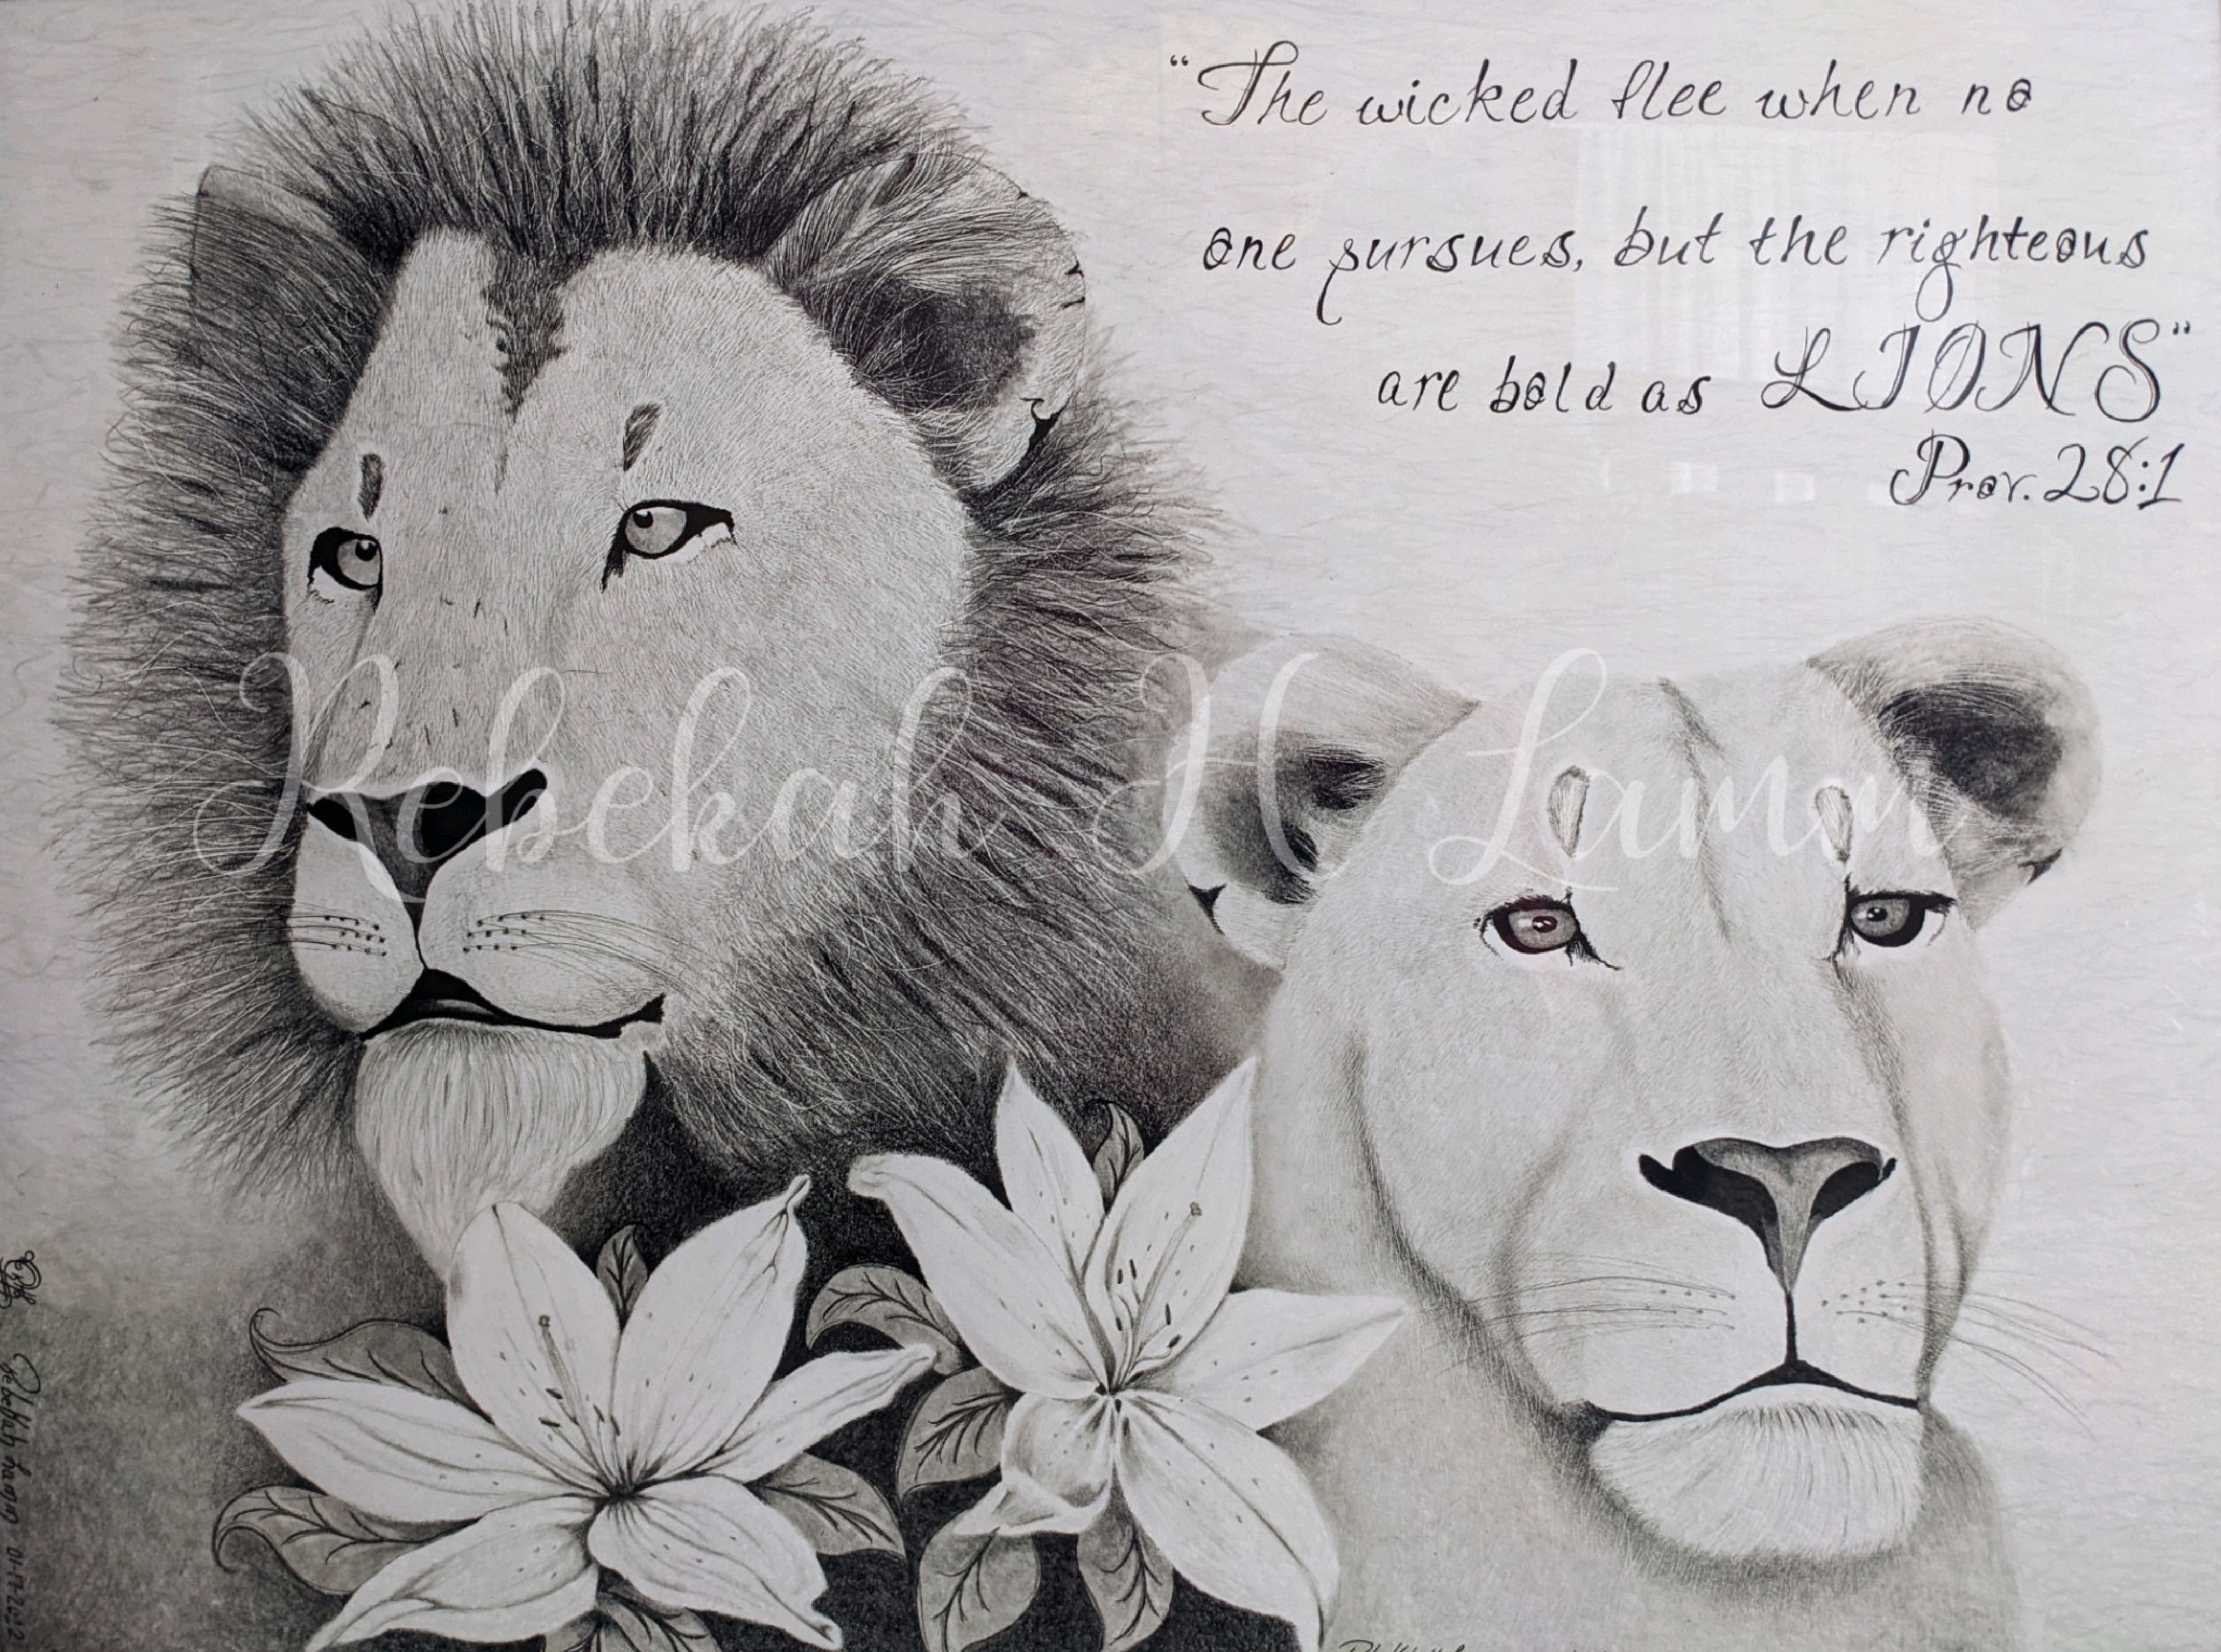 “The wicked flee when no
one pursues, but the righteous
are bold as LIONS”
Prov. 28:1
Rebekah H Lamm
Rebekah Lamm 01-17-2022